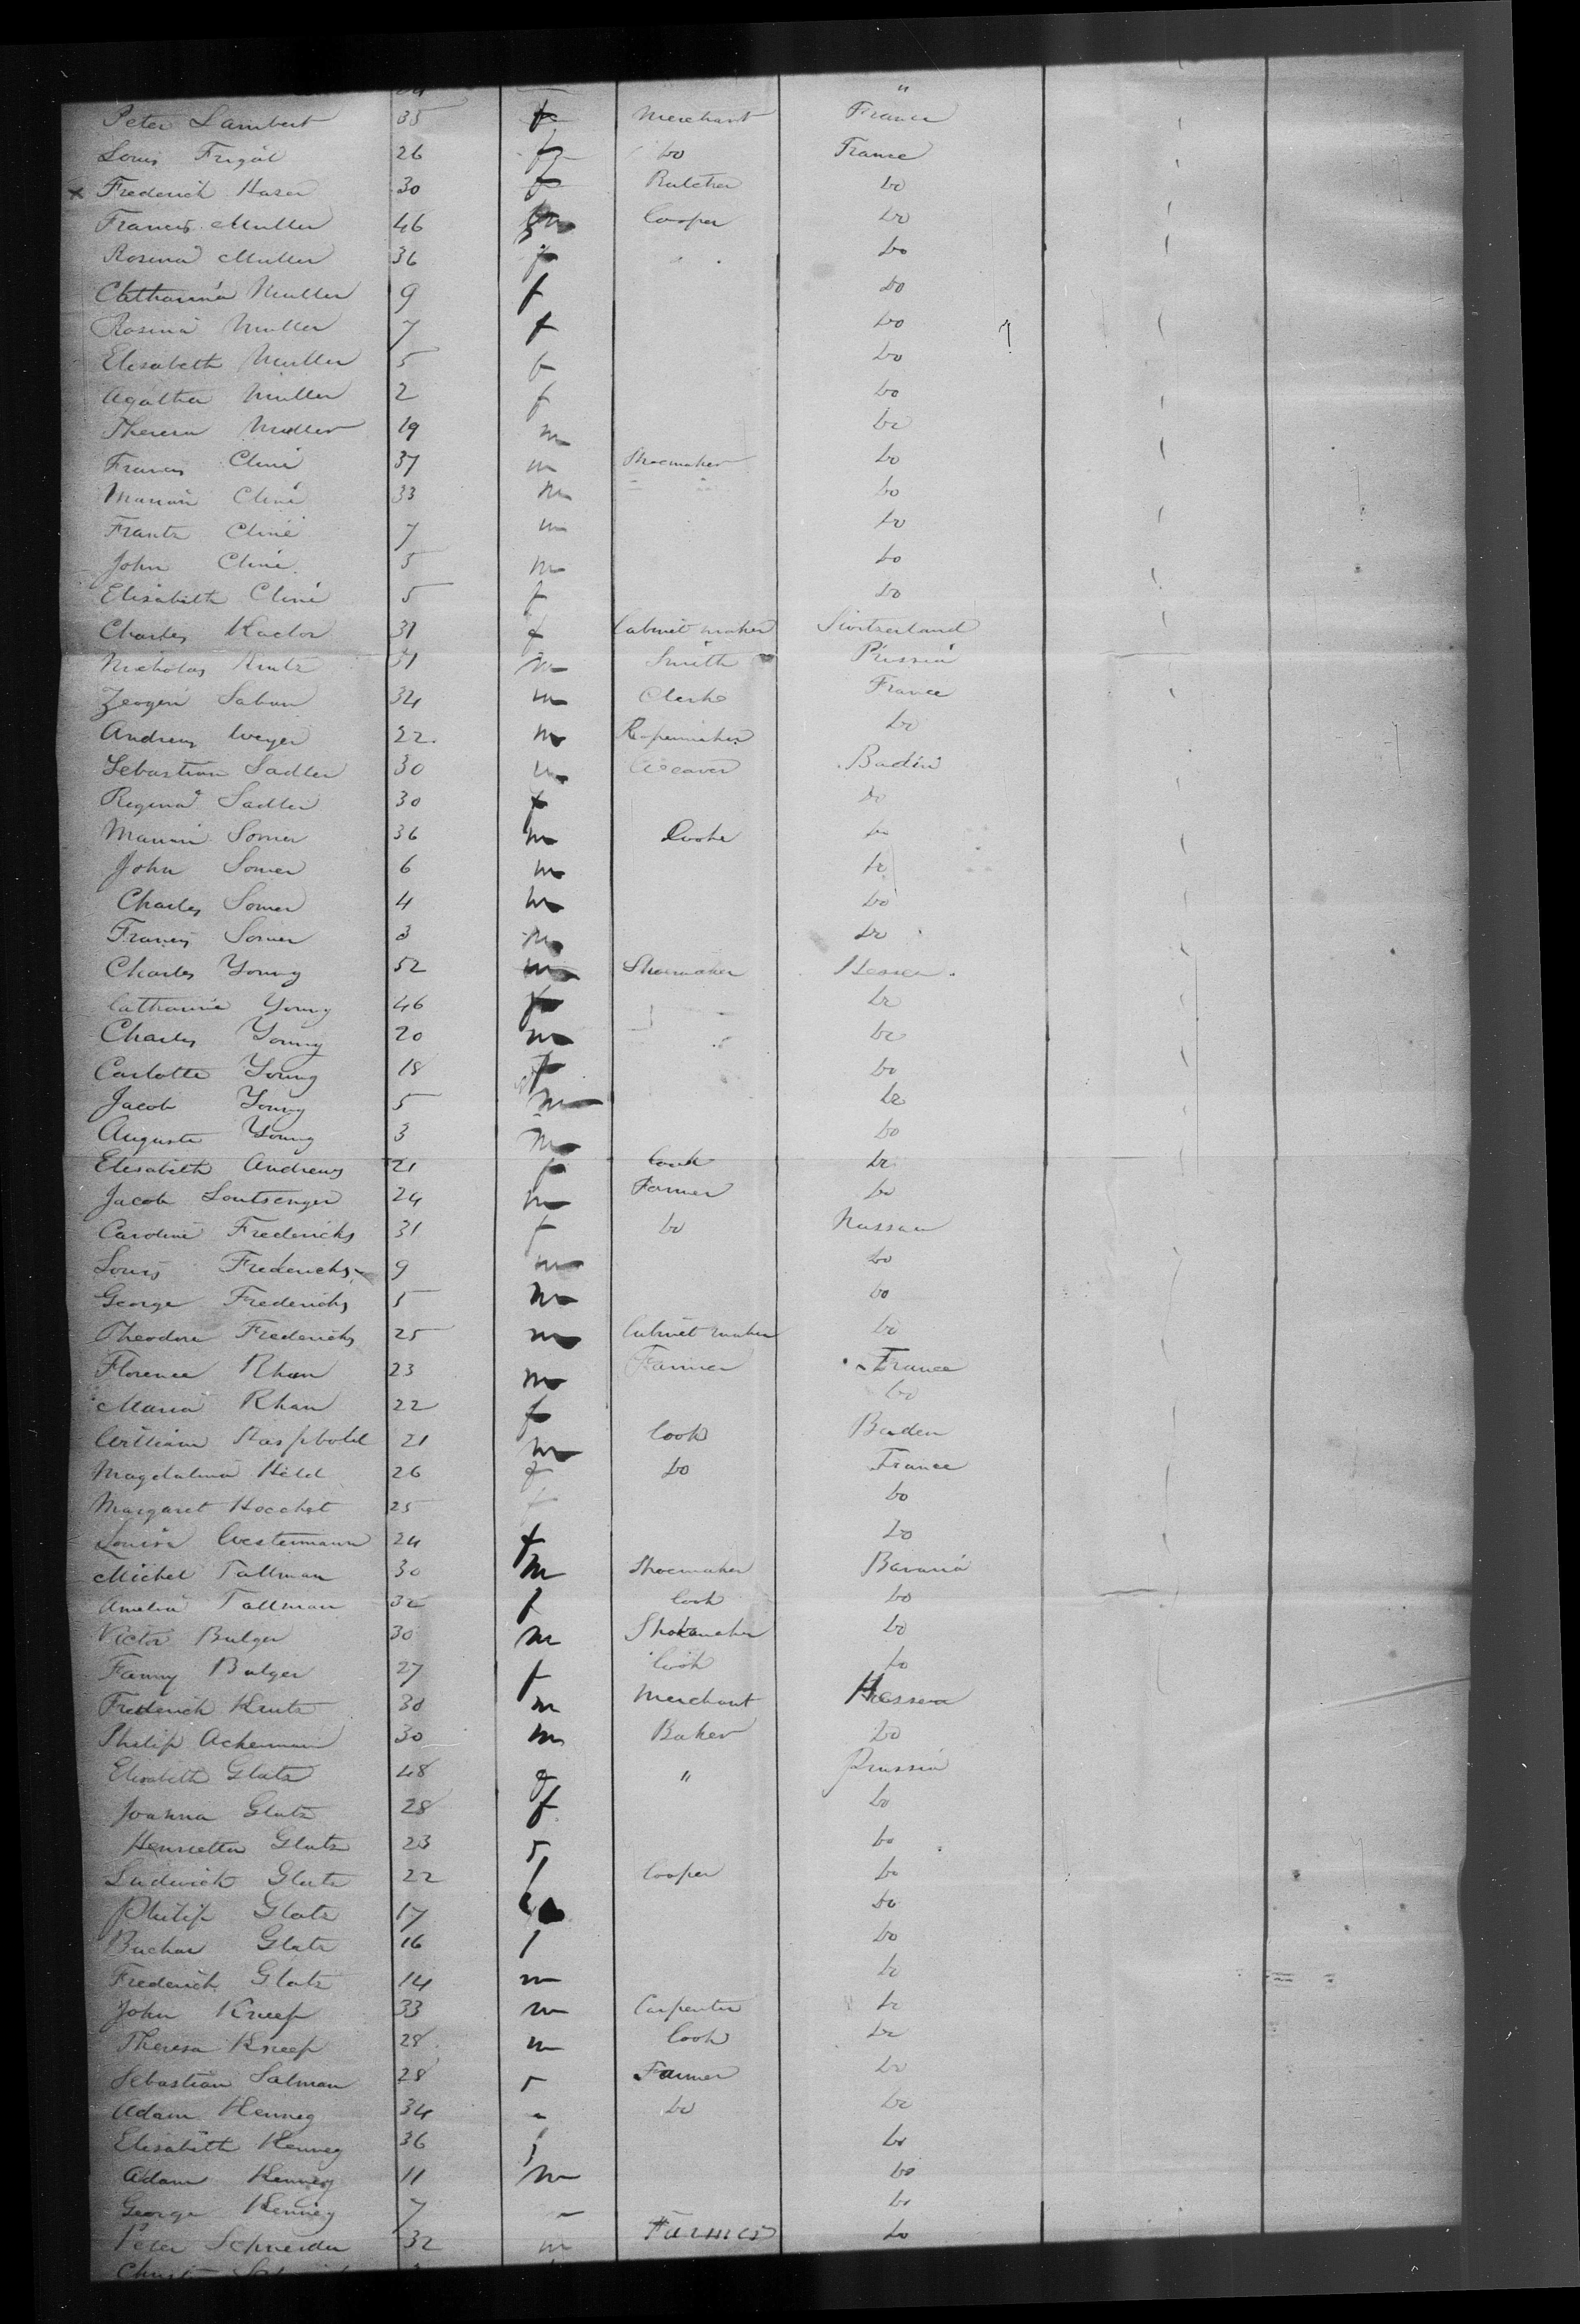 Peter Lambert 35 f Merchant France
Louis Frigal 26 f do France
x Frederick Haser 30 f Butcher do
Francis Muller 46 m Cooper do
Rosina Muller 36 f do
Catharina Muller 9 f do
Rosina Muller 7 f do
Elisabeth Muller 5 f do
Agatha Muller 2 f do
Theresa Muller 19 m do
Francis Cliné 37 m Shoemaker do
Cliné 33 m do
Frantz Cliné 7 m do
John Cliné 5 m do
Elisabeth Cliné 5 f do
Charles 31 f Cabinet maker Switzerland
Nicholas Kutz 31 m Smith Prussia
Sabun 34 m Clerk France
Andrew Weyer 22 m Ropemaker do
Sebastian Sadler 30 m Weaver Baden
Regina Sadler 30 f do
Somer 36 m Cooke do
John Somer 6 m do
Charles Somer 4 m do
Francis Somer 3 m do
Charles Young 52 m Shoemaker Hessen
Catharine Young 46 f do
Charles Young 20 m do
Carlotte Young 18 f do
Jacob Young 5 m do
Auguste Young 3 m do
Elisabeth Andrews 21 f Cook do
Jacob Loutsenger 24 m Farmer do
Caroline Fredericks 31 f do Nassau
Louis Fredericks 9 m do
George Fredericks 5 m do
Theodore Fredericks 25 m Cabinet maker do
Florence Rhan 23 m Farmer France
Maria Rhan 22 f do
William Raspbold 21 m Cook Baden
Magdalena Held 26 f do France
Margaret Hocchet 25 f do
Louisa Westermann 24 f do
Michel Tallman 30 m Shoemaker Bavaria
Amelia Tallman 32 f Cook do
Victor Bulger 30 m Shoemaker do
Fanny Bulger 27 f Cook do
Frederick Kuntz 30 m Merchant Hessen
Philip Ackerman 30 m Baker do
Elisabeth Glatz 48 f " Prussia
Joanna Glatz 28 f do
Henrietta Glatz 23 f do
Ludwick Glatz 22 Cooper do
Philip Glatz 17 do
Glatz 16 do
Frederick Glatz 14 m do
John Kneep 33 m Carpenter do
Theresa Kneep 28 m Cook do
Sebastian Salman 28 Farmer do
Adam Henneg 34 do do
Elisabeth Henneg 36 do
Adam Henneg 11 m do
George Henneg 7 do
Peter Schneider 32 m Farmer do